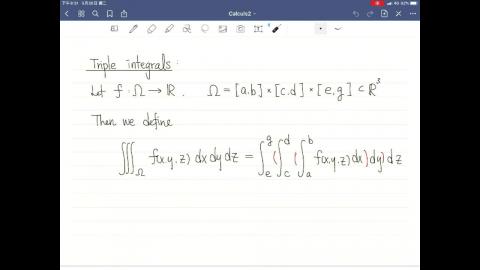 下午8:31 5月26日 週二
Calculs2
92%
Triple integrals:
Let f: Ω → ℝ. Ω = [a.b] × [c.d] × [e,g] ⊂ ℝ³
Then we define
∭_Ω f(x,y,z) dxdydz = ∫_e^g (∫_c^d (∫_a^b f(x,y,z) dx) dy) dz